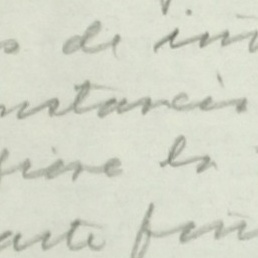 s de in
nstancis
fiere la
arte fin